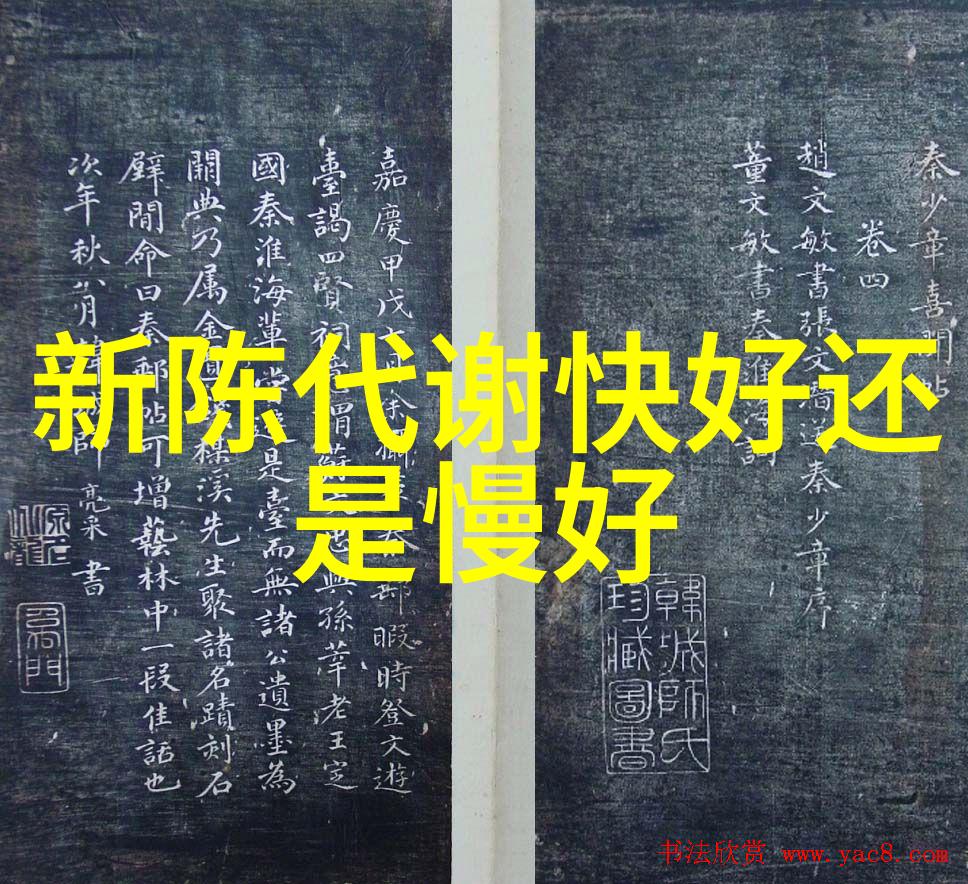 新陈代谢快好还
是慢好
秦少章喜
帖
卷四
趙文敏書張文潛送秦少章序
董文敏書秦淮海詞
韓城師氏
珍臧圖書
嘉慶甲戌
暇時登文遊
臺謁四賢祠
謂蘇
忠與孫莘老王定
國秦淮海輩
是臺而無諸公遺墨為
闕典乃属金
溪先生聚諸名蹟刻石
壁間命曰秦郵帖可增藝林中一段佳話也
次年秋八月韓城師亮采書
书法欣赏 www.yac8.com